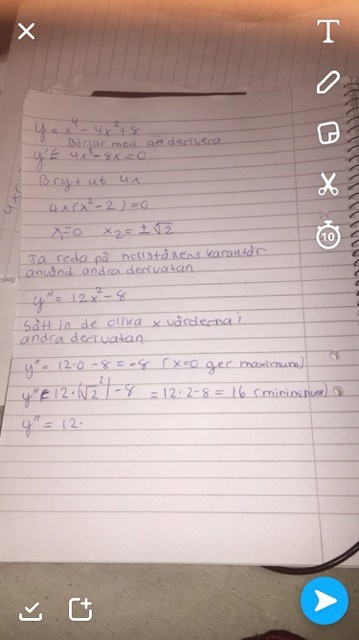 T
y = x⁴ - 4x² + 8
Börjar med att derivera
y' = 4x³ - 8x = 0
Bryt ut 4x
4x(x² - 2) = 0
x₁=0 x₂ = ±√2
Ta reda på nollställens karaktär
använd andra derivatan
y'' = 12x² - 8
Sätt in de olika x värderna i
andra derivatan
y'' = 12·0 - 8 = -8 (x=0 ger maximum)
y'' = 12·(√2²) - 8 = 12·2-8 = 16 (minimum)
y'' = 12·
10